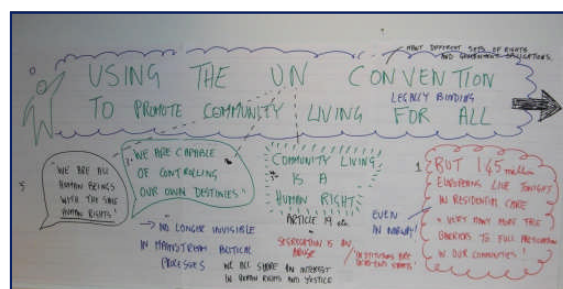 MANY DIFFERENT SETS OF RIGHTS
AND GOVERNMENT OBLIGATIONS.
USING THE UN CONVENTION
LEGALLY BINDING
TO PROMOTE COMMUNITY LIVING FOR ALL
"WE ARE ALL
HUMAN BEINGS
WITH THE SAME
HUMAN RIGHTS"
"WE ARE CAPABLE
OF CONTROLLING
OUR OWN DESTINIES"
→ NO LONGER INVISIBLE
IN MAINSTREAM POLITICAL
PROCESSES
WE ALL SHARE AN INTEREST
IN HUMAN RIGHTS AND JUSTICE
COMMUNITY LIVING
IS A
HUMAN RIGHT
ARTICLE 19
SEGREGATION IS AN
ABUSE
EVEN
IN
BUT 1.45 million
EUROPEANS LIVE TONIGHT
IN RESIDENTIAL CARE
VERY MANY MORE FACE
BARRIERS TO FULL PARTICIPATION
IN OUR COMMUNITIES!